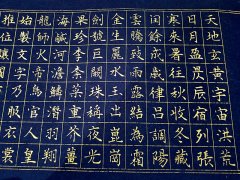 天地玄黃宇宙洪荒
日月盈昃辰宿列張
寒來暑往秋收冬藏
閏餘成歲律呂調陽
雲騰致雨露結為霜
金生麗水玉出崑崗
劍號巨闕珠稱夜光
果珍李柰菜重芥薑
海鹹河淡鱗潛羽翔
龍師火帝鳥官人皇
始製文字乃服衣裳
推位讓